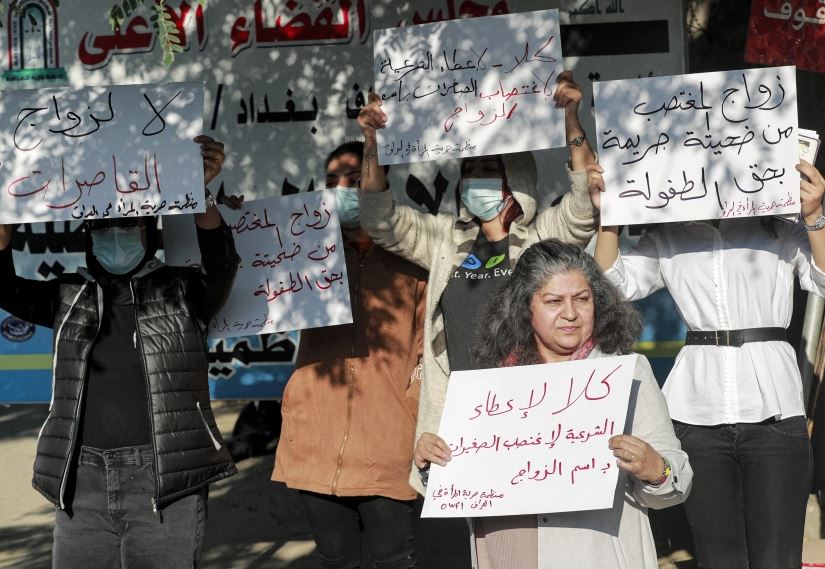 مجلس القضاء الأعلى
الله اكبر
بغداد /
لا لزواج
القاصرات
منظمة حرية المرأة في العراق
كلا - لاعطاء الشرعية
لاغتصاب الصغيرات باسم
الزواج
منظمة حرية المرأة في العراق
زواج المغتصب
من ضحيتة جريمة
بحق الطفولة
منظمة حرية المرأة في العراق
زواج المغتصب
من ضحيتة
بحق الطفولة
منظمة حرية المرأة في العراق
st. Year. Ev
كلا لإعطاء
الشرعية لإغتصب الصغيرات
بأسم الزواج
منظمة حرية المرأة في
العراق OWFI